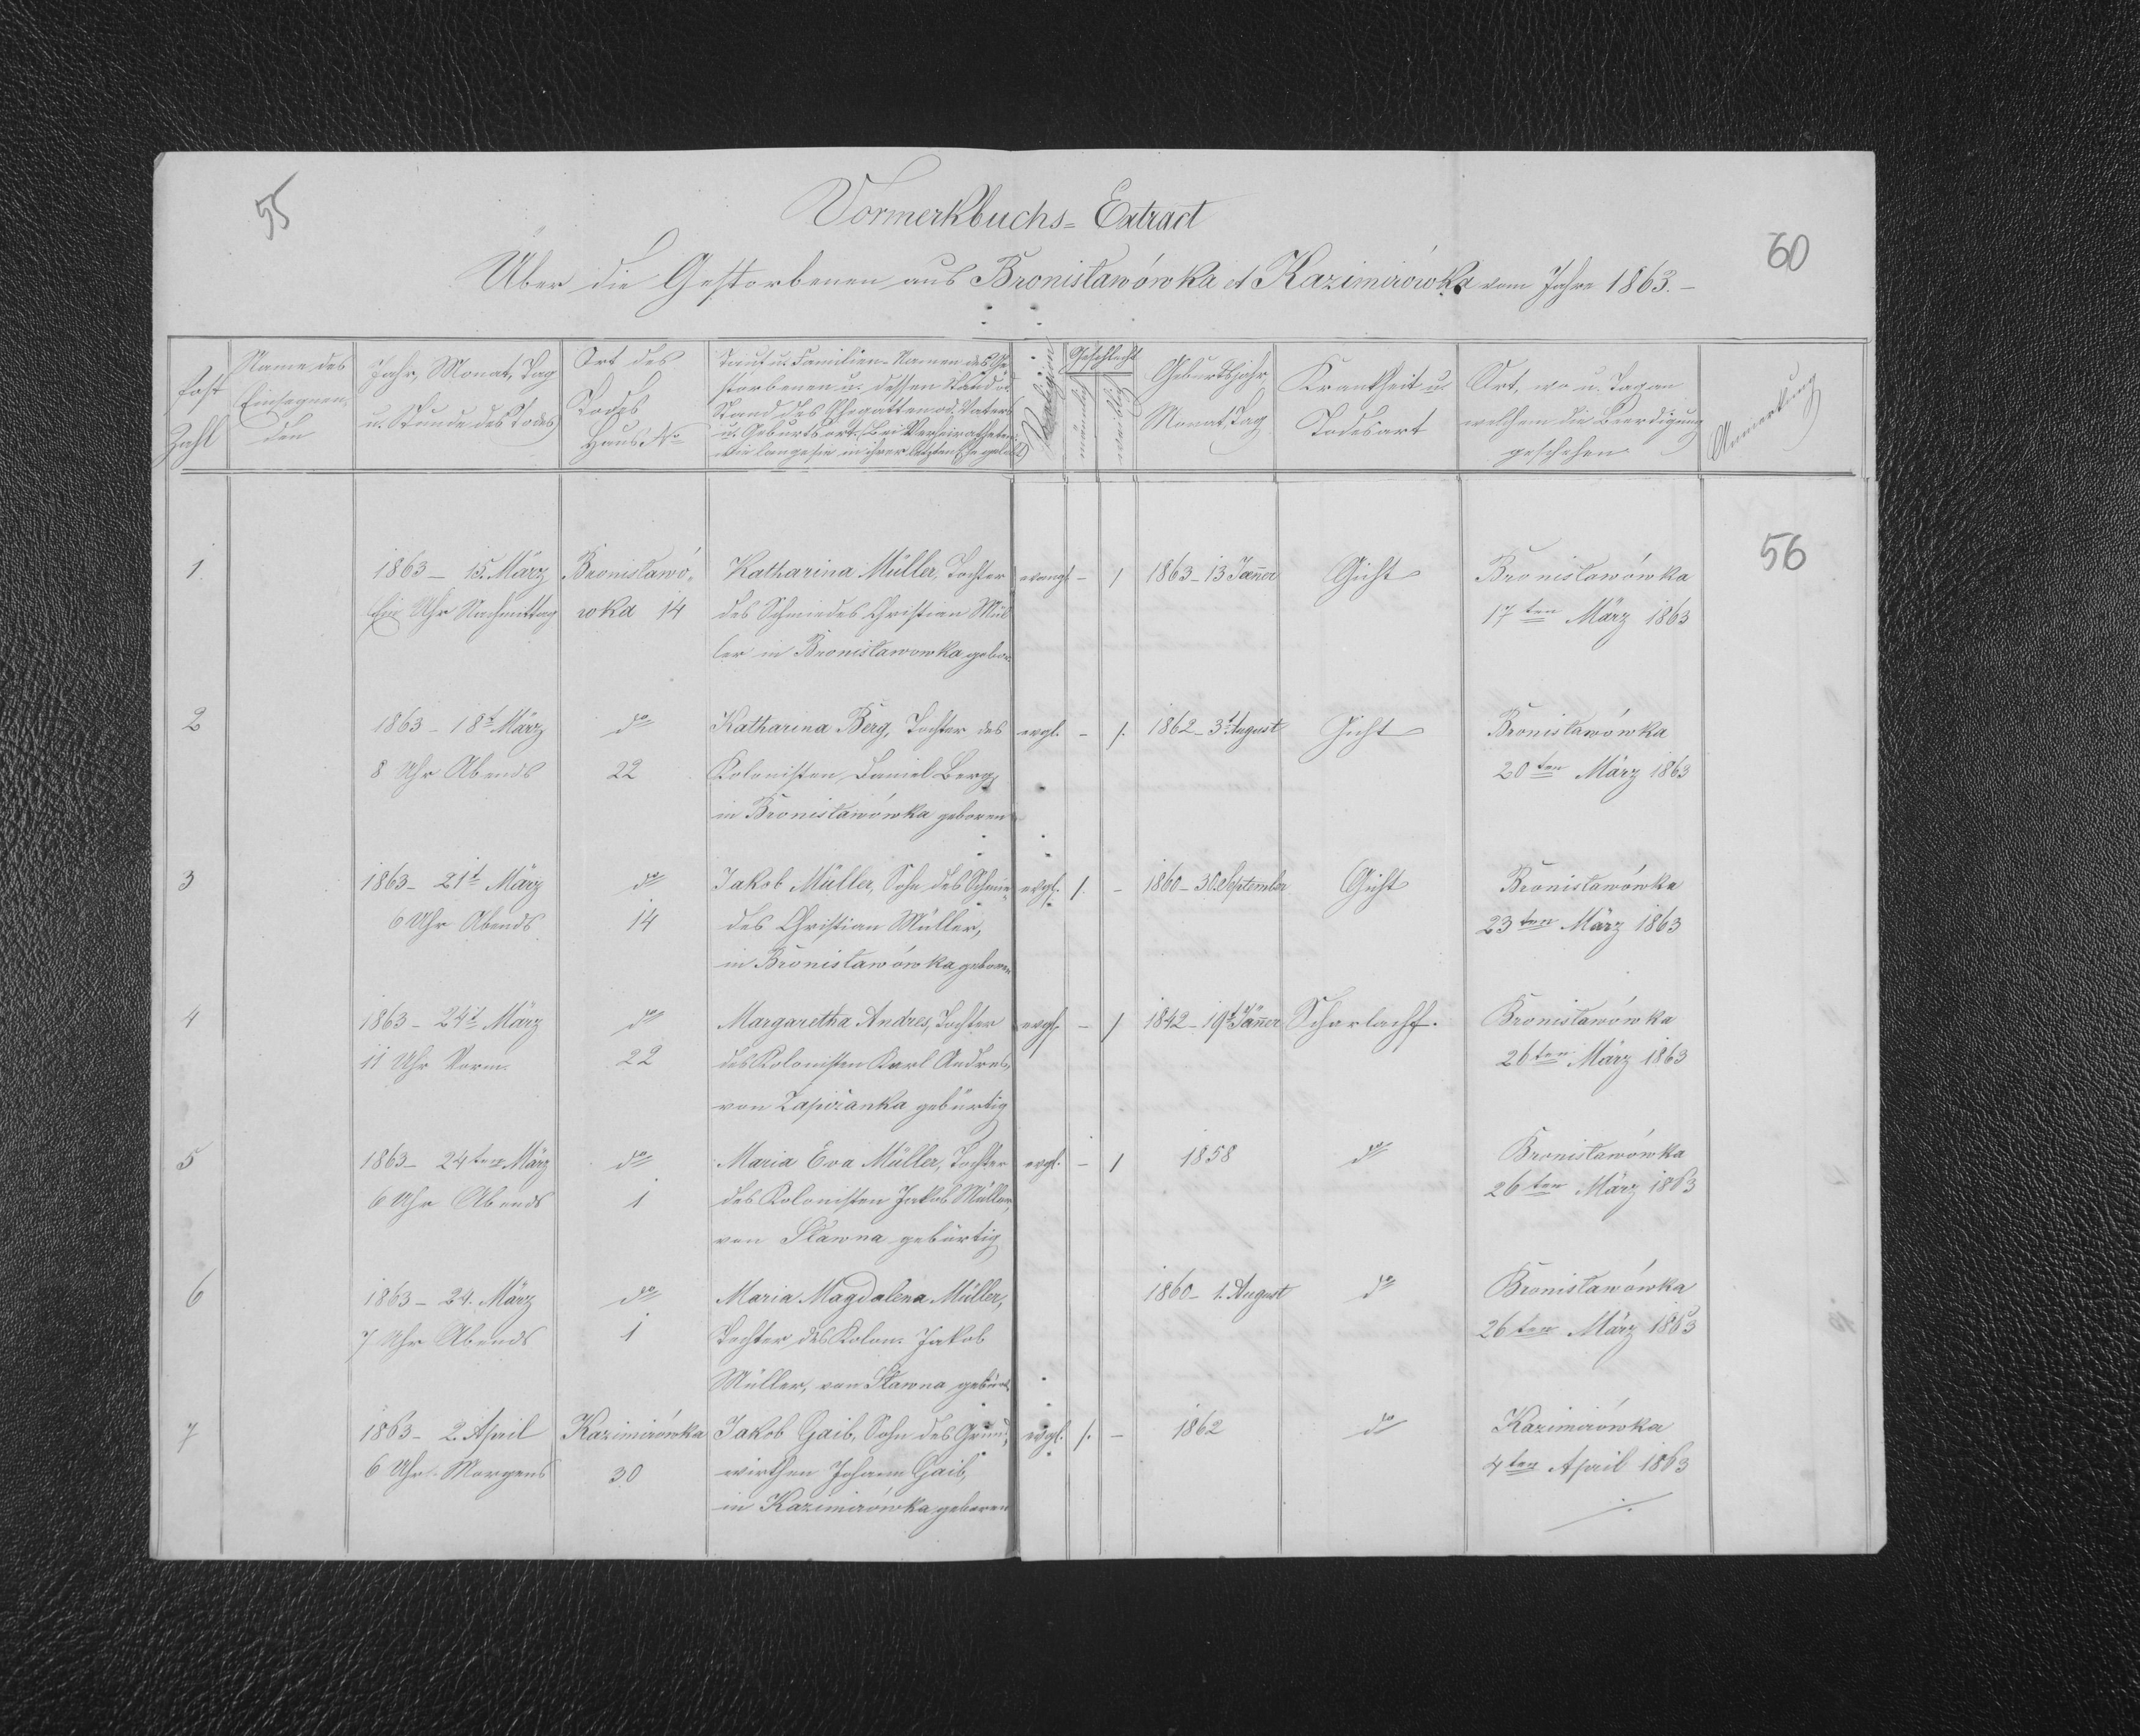 55
Vormerkbuchs= Extract
60
Über die Gestorbenen aus Bronisławówka et Kazimirówka vom Jahre 1863.-
Post
Zahl
Name des
Einsegnen
den
Jahr, Monat, Tag
u. Stunde des Todes
Ort des
Todes
Haus No
Tauf u. Familien-Namen des Ge
storbenen u. dessen Stand u.
Stand des Ehegatten od. Vaters
u. Geburtsort. Bei Verheiratheten
wie lange sie in ihrer letzten Ehe gelebt
Religion
Geschlecht
mänlich
weiblich
Geburtsjahr
Monat, Tag
Krankheit u.
Todesart
Ort, wo u. Tag an
welchem die Beerdigung
geschehen
Anmerkung
56
1. 1863 - 15. März Bronisławó= Katharina Müller, Tochter evangl - 1 1863 - 13 Jañer Gicht Bronisławówka
Ein Uhr Nachmittag wka 14 des Schmiedes Christian Mül 17ten März 1863
ler in Bronisławowka gebor.
2 1863 - 18t März do Katharina Berg, Tochter des evgl. - 1. 1862 - 3t August Gicht Bronisławówka
8 Uhr Abends 22 Kolonisten Daniel Berg, 20ten März 1863
in Bronisławówka geboren
3 1863 - 21t März do Jakob Müller, Sohn des Schmie= evgl. 1. - 1860 - 30. September Gicht Bronisławówka
6 Uhr Abends 14 des Christian Müller, 23ten März 1863
in Bronisławówka geboren
4 1863 - 24t März do Margaretha Andres, Tochter evgl. - 1 1842 - 19t Jäñer Scharlachf. Bronisławówka
11 Uhr Vorm. 22 des Kolonisten Karl Andres, 26ten März 1863
von Zapużanka gebürtig
5 1863 - 24ten März do Maria Eva Müller, Tochter evgl. - 1 1858 do Bronisławówka
6 Uhr Abends 1 des Kolonisten Jakob Müller, 26ten März 1863
von Sławna gebürtig
6 1863 - 24. März do Maria Magdalena Müller, 1860 - 1. August do Bronisławówka
7 Uhr Abends 1 Tochter des Kolon. Jakob 26ten März 1863
Müller, von Sławna gebürt.
7 1863 - 2. April Kazimirówka Jakob Gaib, Sohn des Grund= evgl. 1. - 1862 do Kazimirówka
6 Uhr Morgens 30 wirthen Johann Gaib, 4ten April 1863
in Kazimirówka geboren